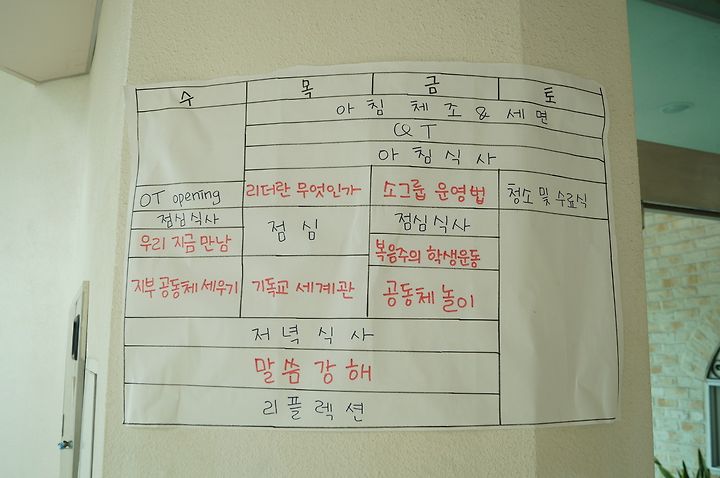 수 목 금 토
아침 체조 & 세면
QT
아침식사
OT opening 리더란 무엇인가 소그룹 운영법 청소 및 수료식
점심식사 점심 점심식사
우리 지금 만남 복음주의 학생운동
지부 공동체 세우기 기독교 세계관 공동체 놀이
저녁식사
말씀강해
리플렉션